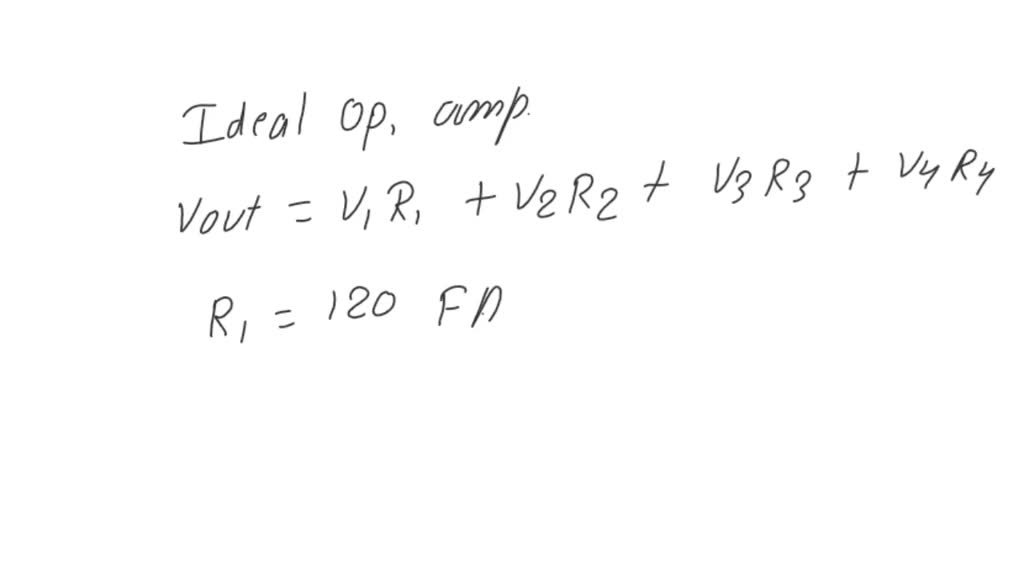 Ideal Op. amp.
Vout = V1R1 + V2R2 + V3R3 + V4R4
R1 = 120 FΩ